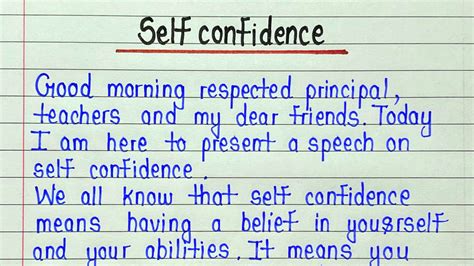 Self confidence
Good morning respected principal,
teachers and my dear friends. Today
I am here to present a speech on
self confidence.
We all know that self confidence
means having a belief in yousrself
and your abilities. It means you